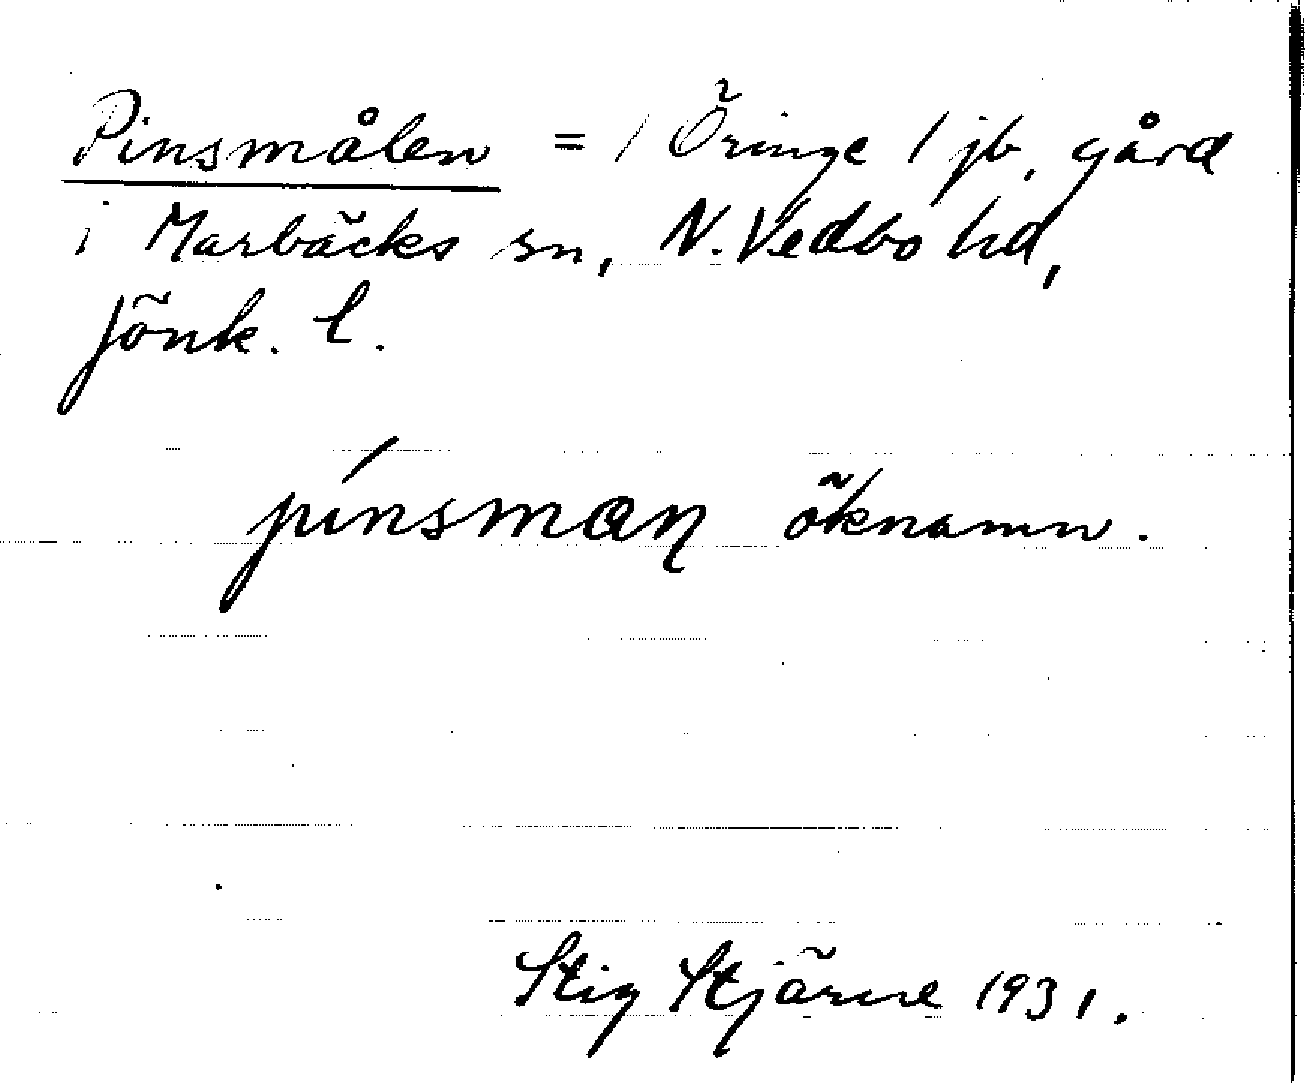 Pinsmålen = / Öringe / jb. gård
i Marbäcks sn, N. Vedbo hd,
Jönk. l.
pínsman öknamn.
Stig Stjärne 1931.